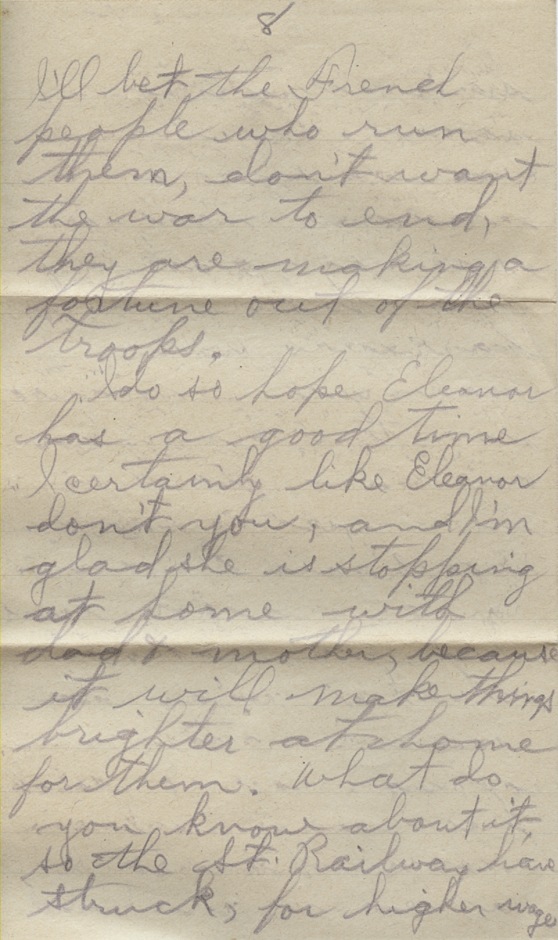 8
I'll bet the French
people who run
them, don't want
the war to end,
they are making a
fortune out of the
troops.
I do so hope Eleanor
has a good time
I certainly like Eleanor
don't you, and I'm
glad she is stopping
at home with
dad & mother, because
it will make things
brighter at home
for them. What do
you know about it,
so the St. Railway have
struck, for higher wages